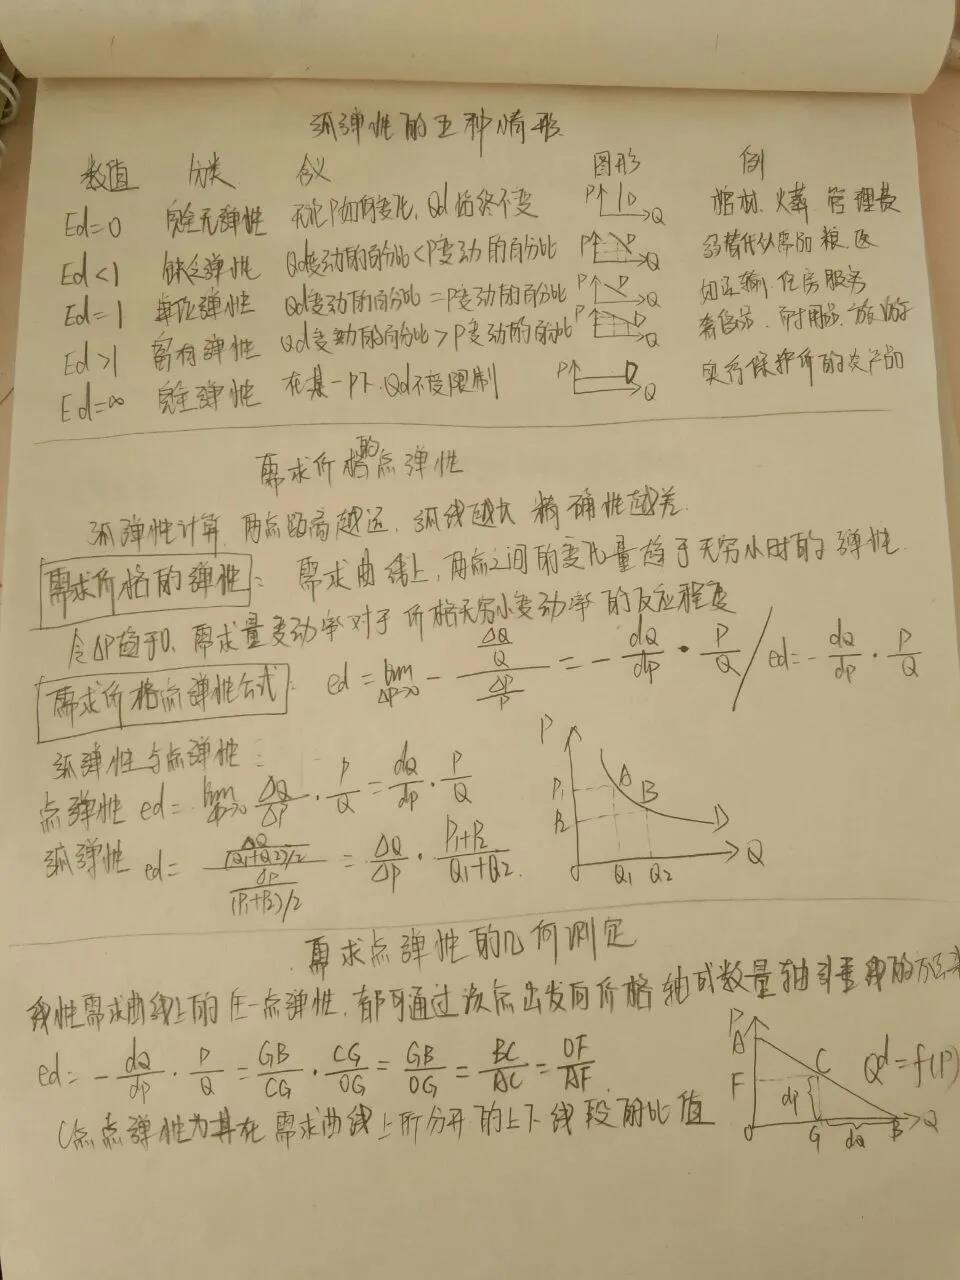 弧弹性的五种情形
数值 分类 含义 图形 例
Ed=0 完全无弹性 无论P如何变化,Qd始终不变 P D Q 棺材、火葬 管理费
Ed<1 缺乏弹性 Qd变动的百分比<P变动的百分比 P D Q 替代 必需品 粮、医
Ed=1 单位弹性 Qd变动的百分比=P变动的百分比 P D Q 如运输、住房服务
Ed>1 富有弹性 Qd变动的百分比>P变动的百分比 P D Q 奢侈品、耐用品、旅游
Ed=∞ 完全弹性 在某一P下、Qd不受限制 P D Q 实行保护价的农产品
需求价格的点弹性
弧弹性计算,两点距离越远,弧线越大 精确性越差.
需求价格的弹性: 需求曲线上,两点之间的变化量趋于无穷小时的弹性.
令ΔP趋于0,需求量变动率对于价格无穷小变动率的反应程度
需求价格点弹性公式: ed = lim ΔP→0 - (ΔQ/Q)/(ΔP/P) = - dQ/dP · P/Q / ed = - dQ/dP · P/Q
弧弹性与点弹性:
点弹性 ed = lim ΔP→0 ΔQ/ΔP · P/Q = dQ/dP · P/Q
弧弹性 ed = (ΔQ/(Q1+Q2)/2)/(ΔP/(P1+P2)/2) = ΔQ/ΔP · (P1+P2)/(Q1+Q2).
P
P1 A
P2 B
D
O Q1 Q2 Q
需求点弹性的几何测定
线性需求曲线上的任一点弹性,都可通过该点出发向价格轴或数量轴引垂线的方法来
ed = - dQ/dP · P/Q = GB/CG · CG/OG = GB/OG = BC/AC = OF/AF.
C点点弹性为其在需求曲线上所分开的上下线段的比值
P
A
F C Qd=f(P)
dp
O G dQ B Q